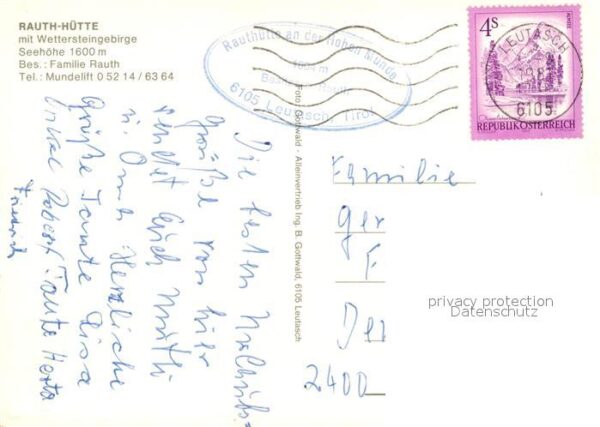 RAUTH-HÜTTE
mit Wettersteingebirge
Seehöhe 1600 m
Bes.: Familie Rauth
Tel.: Mundelift 0 52 14 / 63 64
Rauthhütte an der Hohen Munde
Besitzer Rauth
6105 Leutasch, Tirol
LEUTASCH
6105
4S
ALMSEE
REPUBLIK ÖSTERREICH
Die besten Urlaubs=
grüße von hier
sendet Euch Mutti
u. Oma Herzliche
Grüße Tante Lisa
Onkel Robert Tante Herta
Friedrich
Foto Gottwald - Alleinvertrieb Ing. B. Gottwald, 6105 Leutasch
Familie
Ger
F
Der
2400
privacy protection
Datenschutz